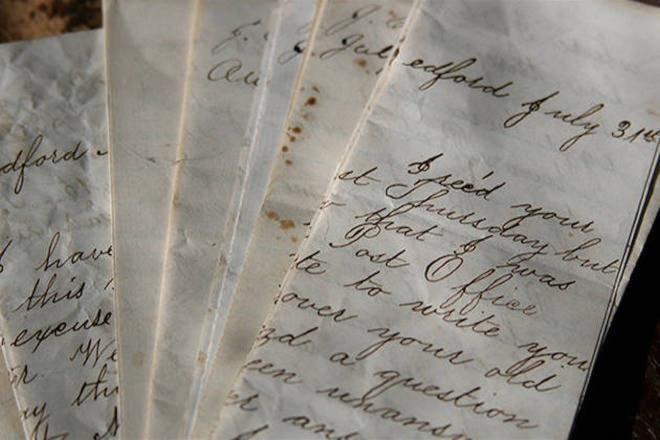 dford
I have
this
excuse
r. We
y th
Au
J. Jul
edford July 31st
I rec'd your
st Thursday but
that I was
Post Office
te to write you
over your old
nd a question
een unansw
er an